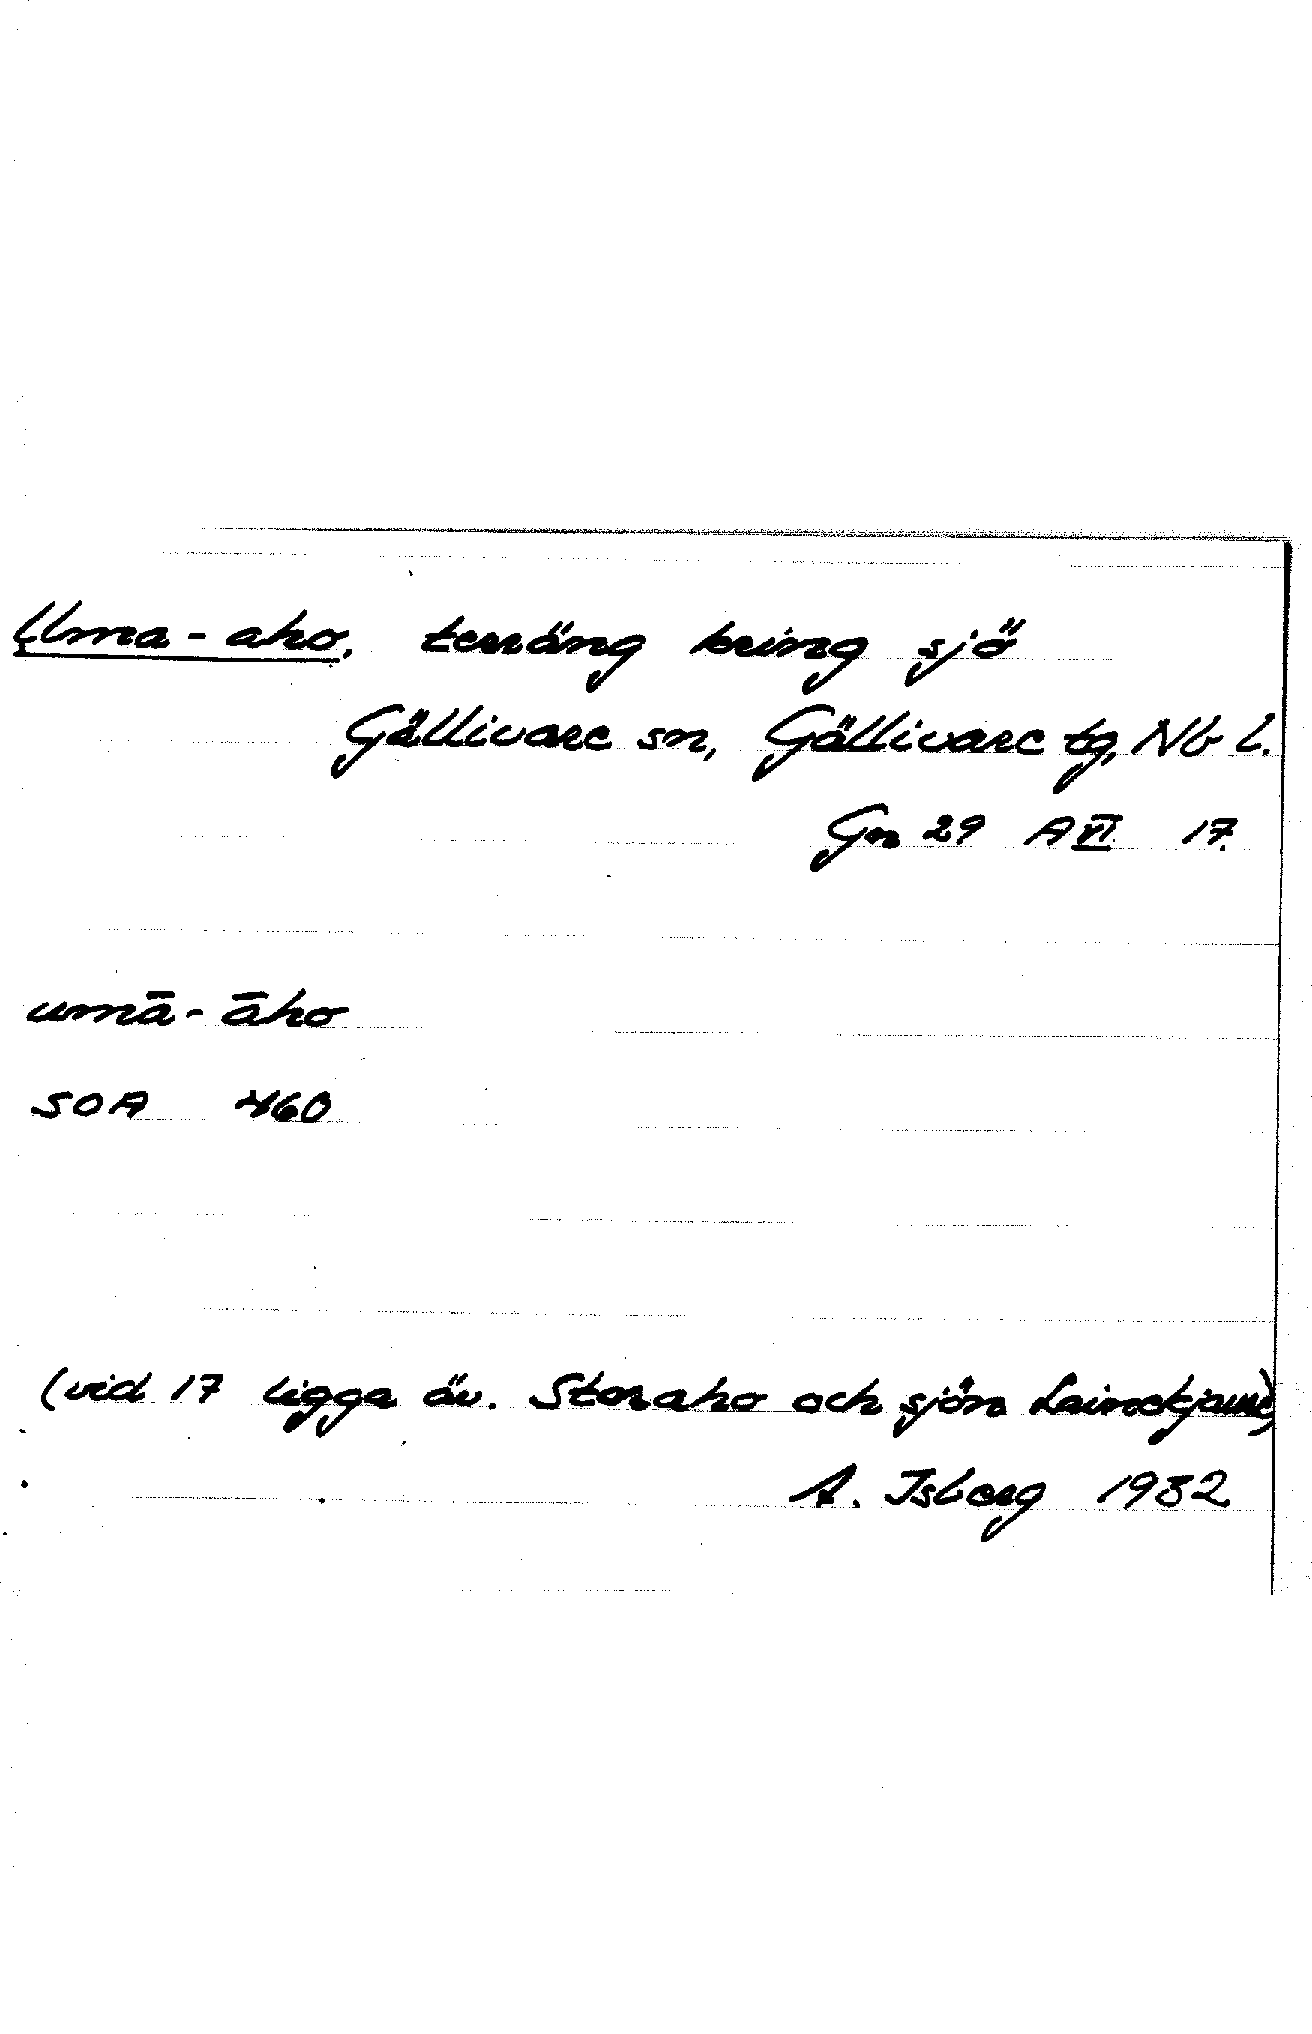 Uma-aho, terräng kring sjö
Gällivare sn, Gällivare tg, Nb l.
Gn 29 A VI 17.
umā-āho
SOA 460
(vid 17 ligga äv. Storaho och sjön
A. Isberg 1932